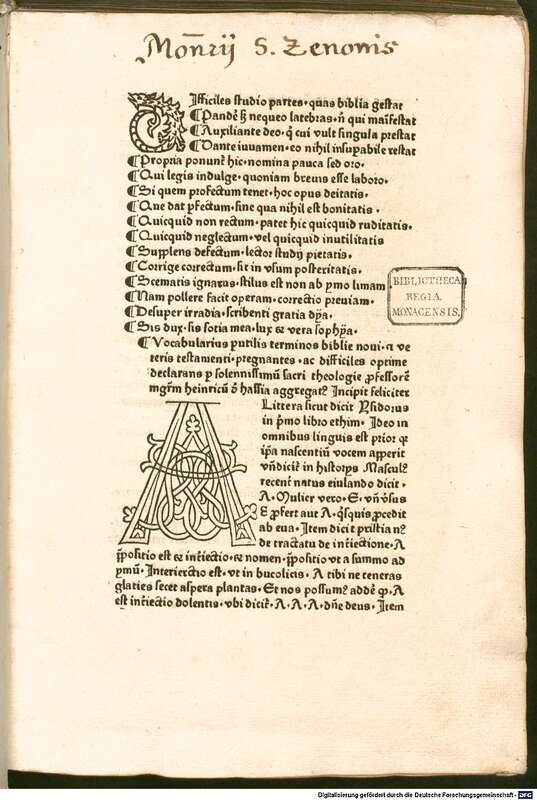 Mon̄rij S. Zenonis
Difficiles studio partes· quas biblia gestat
¶Pandē sȝ nequeo latebras· n̄ qui manifestat
¶Auxiliante deo· q̄ cui vult singula prestat
¶Dante iuuamen· eo nihil insupabile restat
¶Propria ponunt̄ hic· nomina pauca sed oro·
¶Qui legis indulge· quoniam breuis esse laboro·
¶Si quem profectum tenet· hoc opus deitatis·
¶Que dat ꝓfectum· sine qua nihil est bonitatis·
¶Quicquid non rectum· patet hic quicquid ruditatis·
¶Quicquid neglectum· vel quicquid inutilitatis
¶Supplens defectum· lector studij pietatis·
¶Corrige correctum· sit in vsum posteritatis·
¶Scematis ignarus· stilus est non ab pͥmo limam
¶Nam pollere facit operam· correctio preuiam·
¶Desuper irradia· scribenti gratia dya·
¶Sis dux· sis sotia mea· lux & vera sophya·
¶Vocabularius putilis terminos biblie noui· a ve
teris testamenti· ptegnantes· ac difficiles optime
declarans ꝑ solennissimū sacri theologie ꝓfessorē
mgr̄m heinricū ō hassia aggregat⁊ Incipit feliciter
A Littera sicut dicit Ysidorus
in pͥmo libro ethim· Ideo in
omnibus linguis est prior qꝛ
ip̄a nascentiū vocem apperit
vn̄dicit̄ in historys Mascul⁊
recent̄ natus eiulando dicit·
A· Mulier vero· E· vn̄ v̄sus
E ꝓfert aut A· q̄squis ꝓcedit
ab eua· Item dicit pristia n⁊
de tractatu de int̄iectione· A
p̄positio est & int̄iectio· & nomen· p̄positio vt a summo ad
ymū· Interiectio est· vt in bucolicis· A tibi ne teneras
glaties secet aspera plantas· Et nos possum⁊ addē qͣ· A
est int̄iectio dolentis· vbi dicit̄· A· A· A· dn̄e deus· Item
BIBLIOTHECA
REGIA
MONACENSIS.
Digitalisierung gefördert durch die Deutsche Forschungsgemeinschaft - DFG